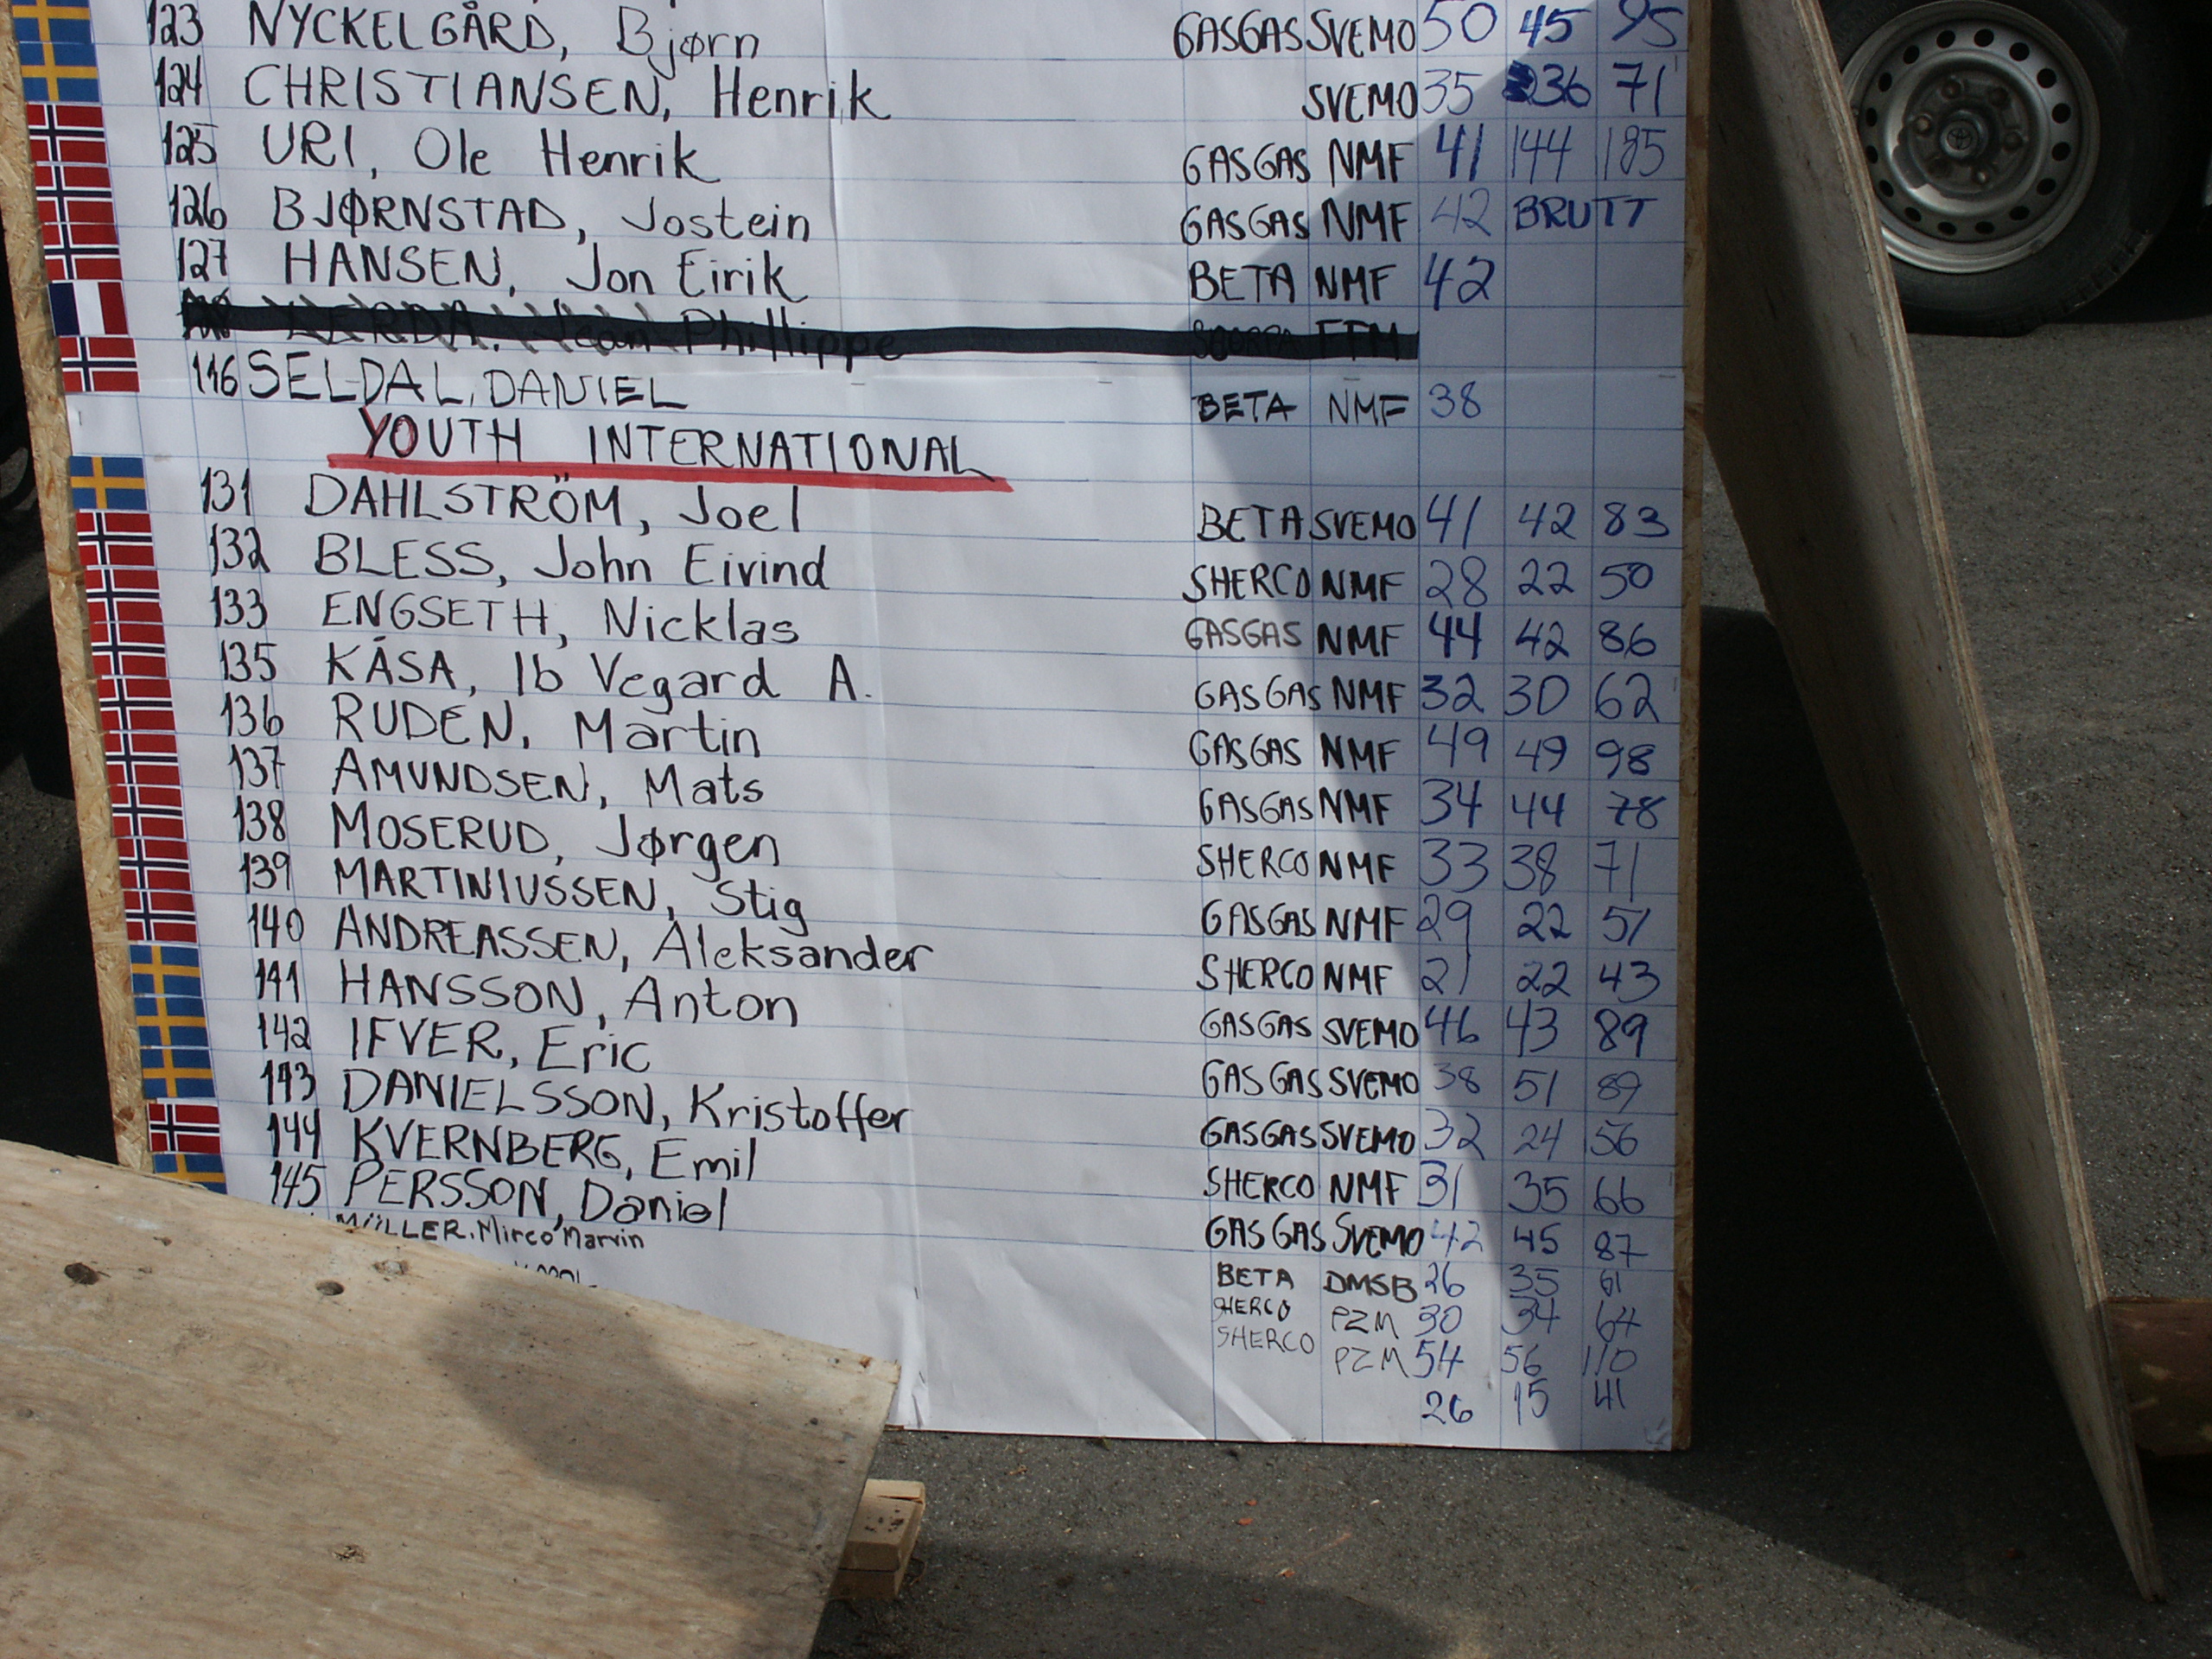 123 NYCKELGÅRD, Bjørn GASGAS SVEMO 50 45 95
124 CHRISTIANSEN, Henrik SVEMO 35 36 71
125 URI, Ole Henrik GASGAS NMF 41 144 185
126 BJØRNSTAD, Jostein GASGAS NMF 42 BRUTT
127 HANSEN, Jon Eirik BETA NMF 42
Jean Phillippe FFM
116 SELDAL, DANIEL BETA NMF 38
YOUTH INTERNATIONAL
131 DAHLSTRÖM, Joel BETA SVEMO 41 42 83
132 BLESS, John Eivind SHERCO NMF 28 22 50
133 ENGSETH, Nicklas GASGAS NMF 44 42 86
135 KÅSA, Ib Vegard A. GASGAS NMF 32 30 62
136 RUDEN, Martin GASGAS NMF 49 49 98
137 AMUNDSEN, Mats GASGAS NMF 34 44 78
138 MOSERUD, Jørgen SHERCO NMF 33 38 71
139 MARTINIUSSEN, Stig GASGAS NMF 29 22 51
140 ANDREASSEN, Aleksander SHERCO NMF 21 22 43
141 HANSSON, Anton GASGAS SVEMO 46 43 89
142 IFVER, Eric GASGAS SVEMO 38 51 89
143 DANIELSSON, Kristoffer GASGAS SVEMO 32 24 56
144 KVERNBERG, Emil SHERCO NMF 31 35 66
145 PERSSON, Daniel GASGAS SVEMO 42 45 87
MÜLLER, Mirco Marvin BETA DMSB 26 35 61
SHERCO PZM 30 34 64
SHERCO PZM 54 56 110
26 15 41